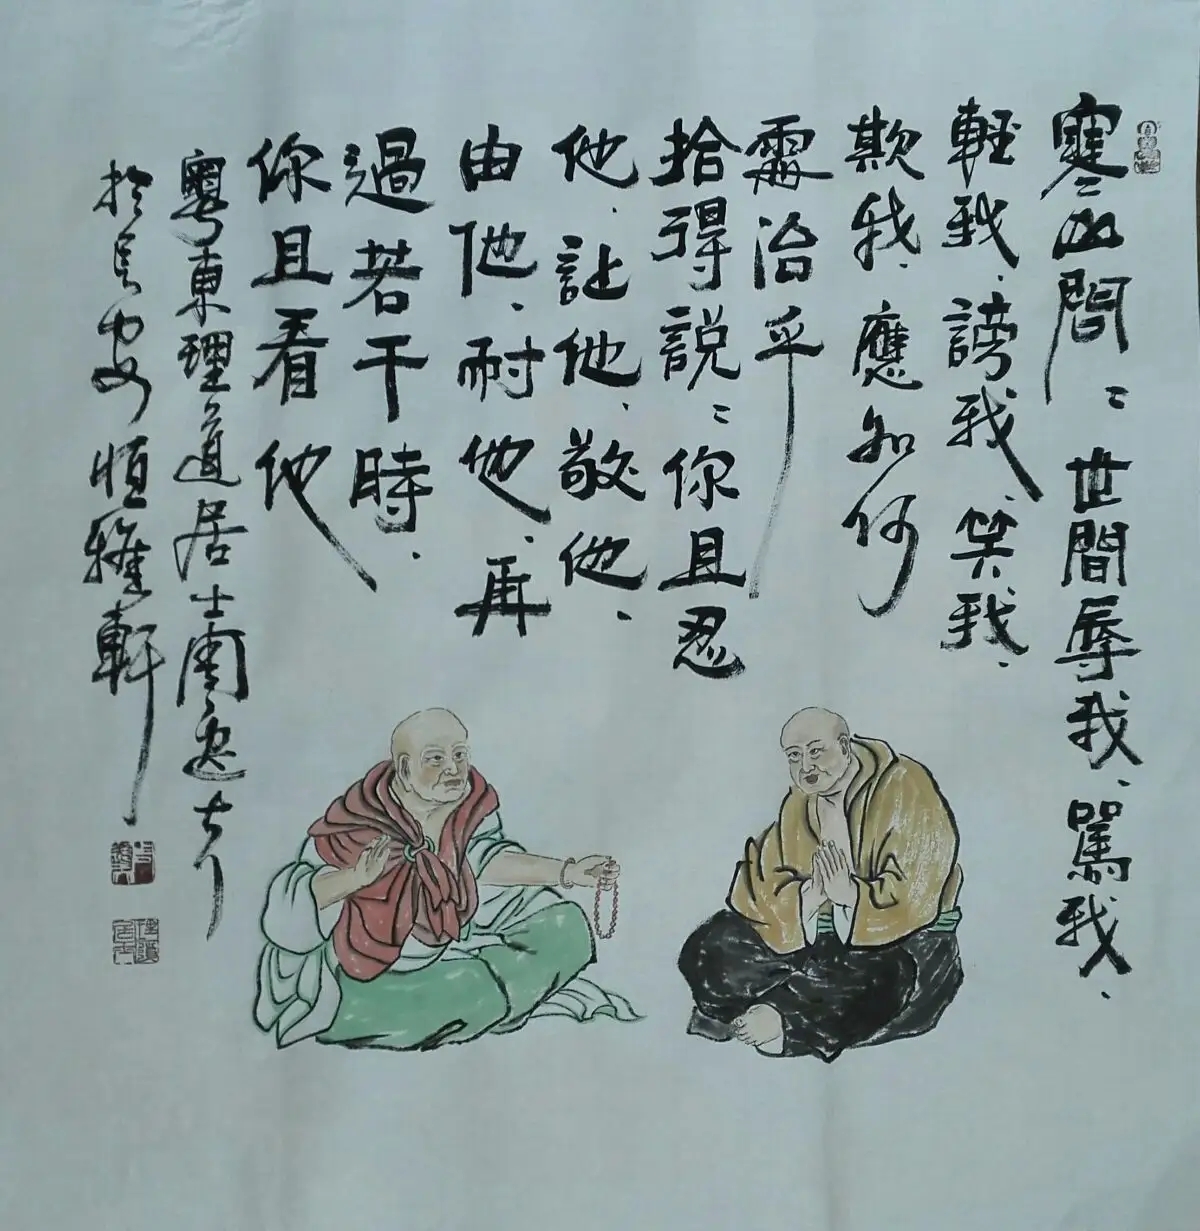 寒山問：世間辱我、罵我、
輕我、謗我、笑我、
欺我、應如何
治乎
拾得説：你且忍
他、让他、敬他、
由他、耐他、再
過若干時、
你且看他
粵東理道居士
於長安恒雅軒